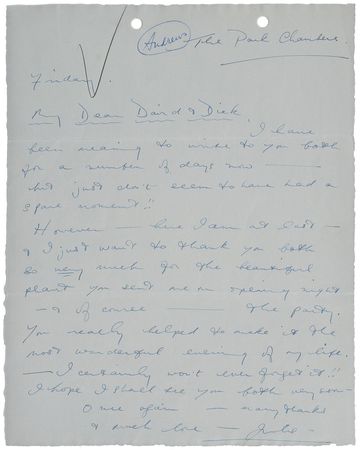 Andrews The Park Chambers.
Friday.
My Dear David & Dick.
I have
been meaning to write to you both
for a number of days now —
but just don't seem to have had a
spare moment!!
However — here I am at last —
& I just want to thank you both
so very much for the beautiful
plant you sent me on opening night
— & of course — the party.
You really helped to make it the
most wonderful evening of my life.
— I certainly won't ever forget it!!
I hope I shall see you both very soon —
Once again — many thanks
& much love — Julie —